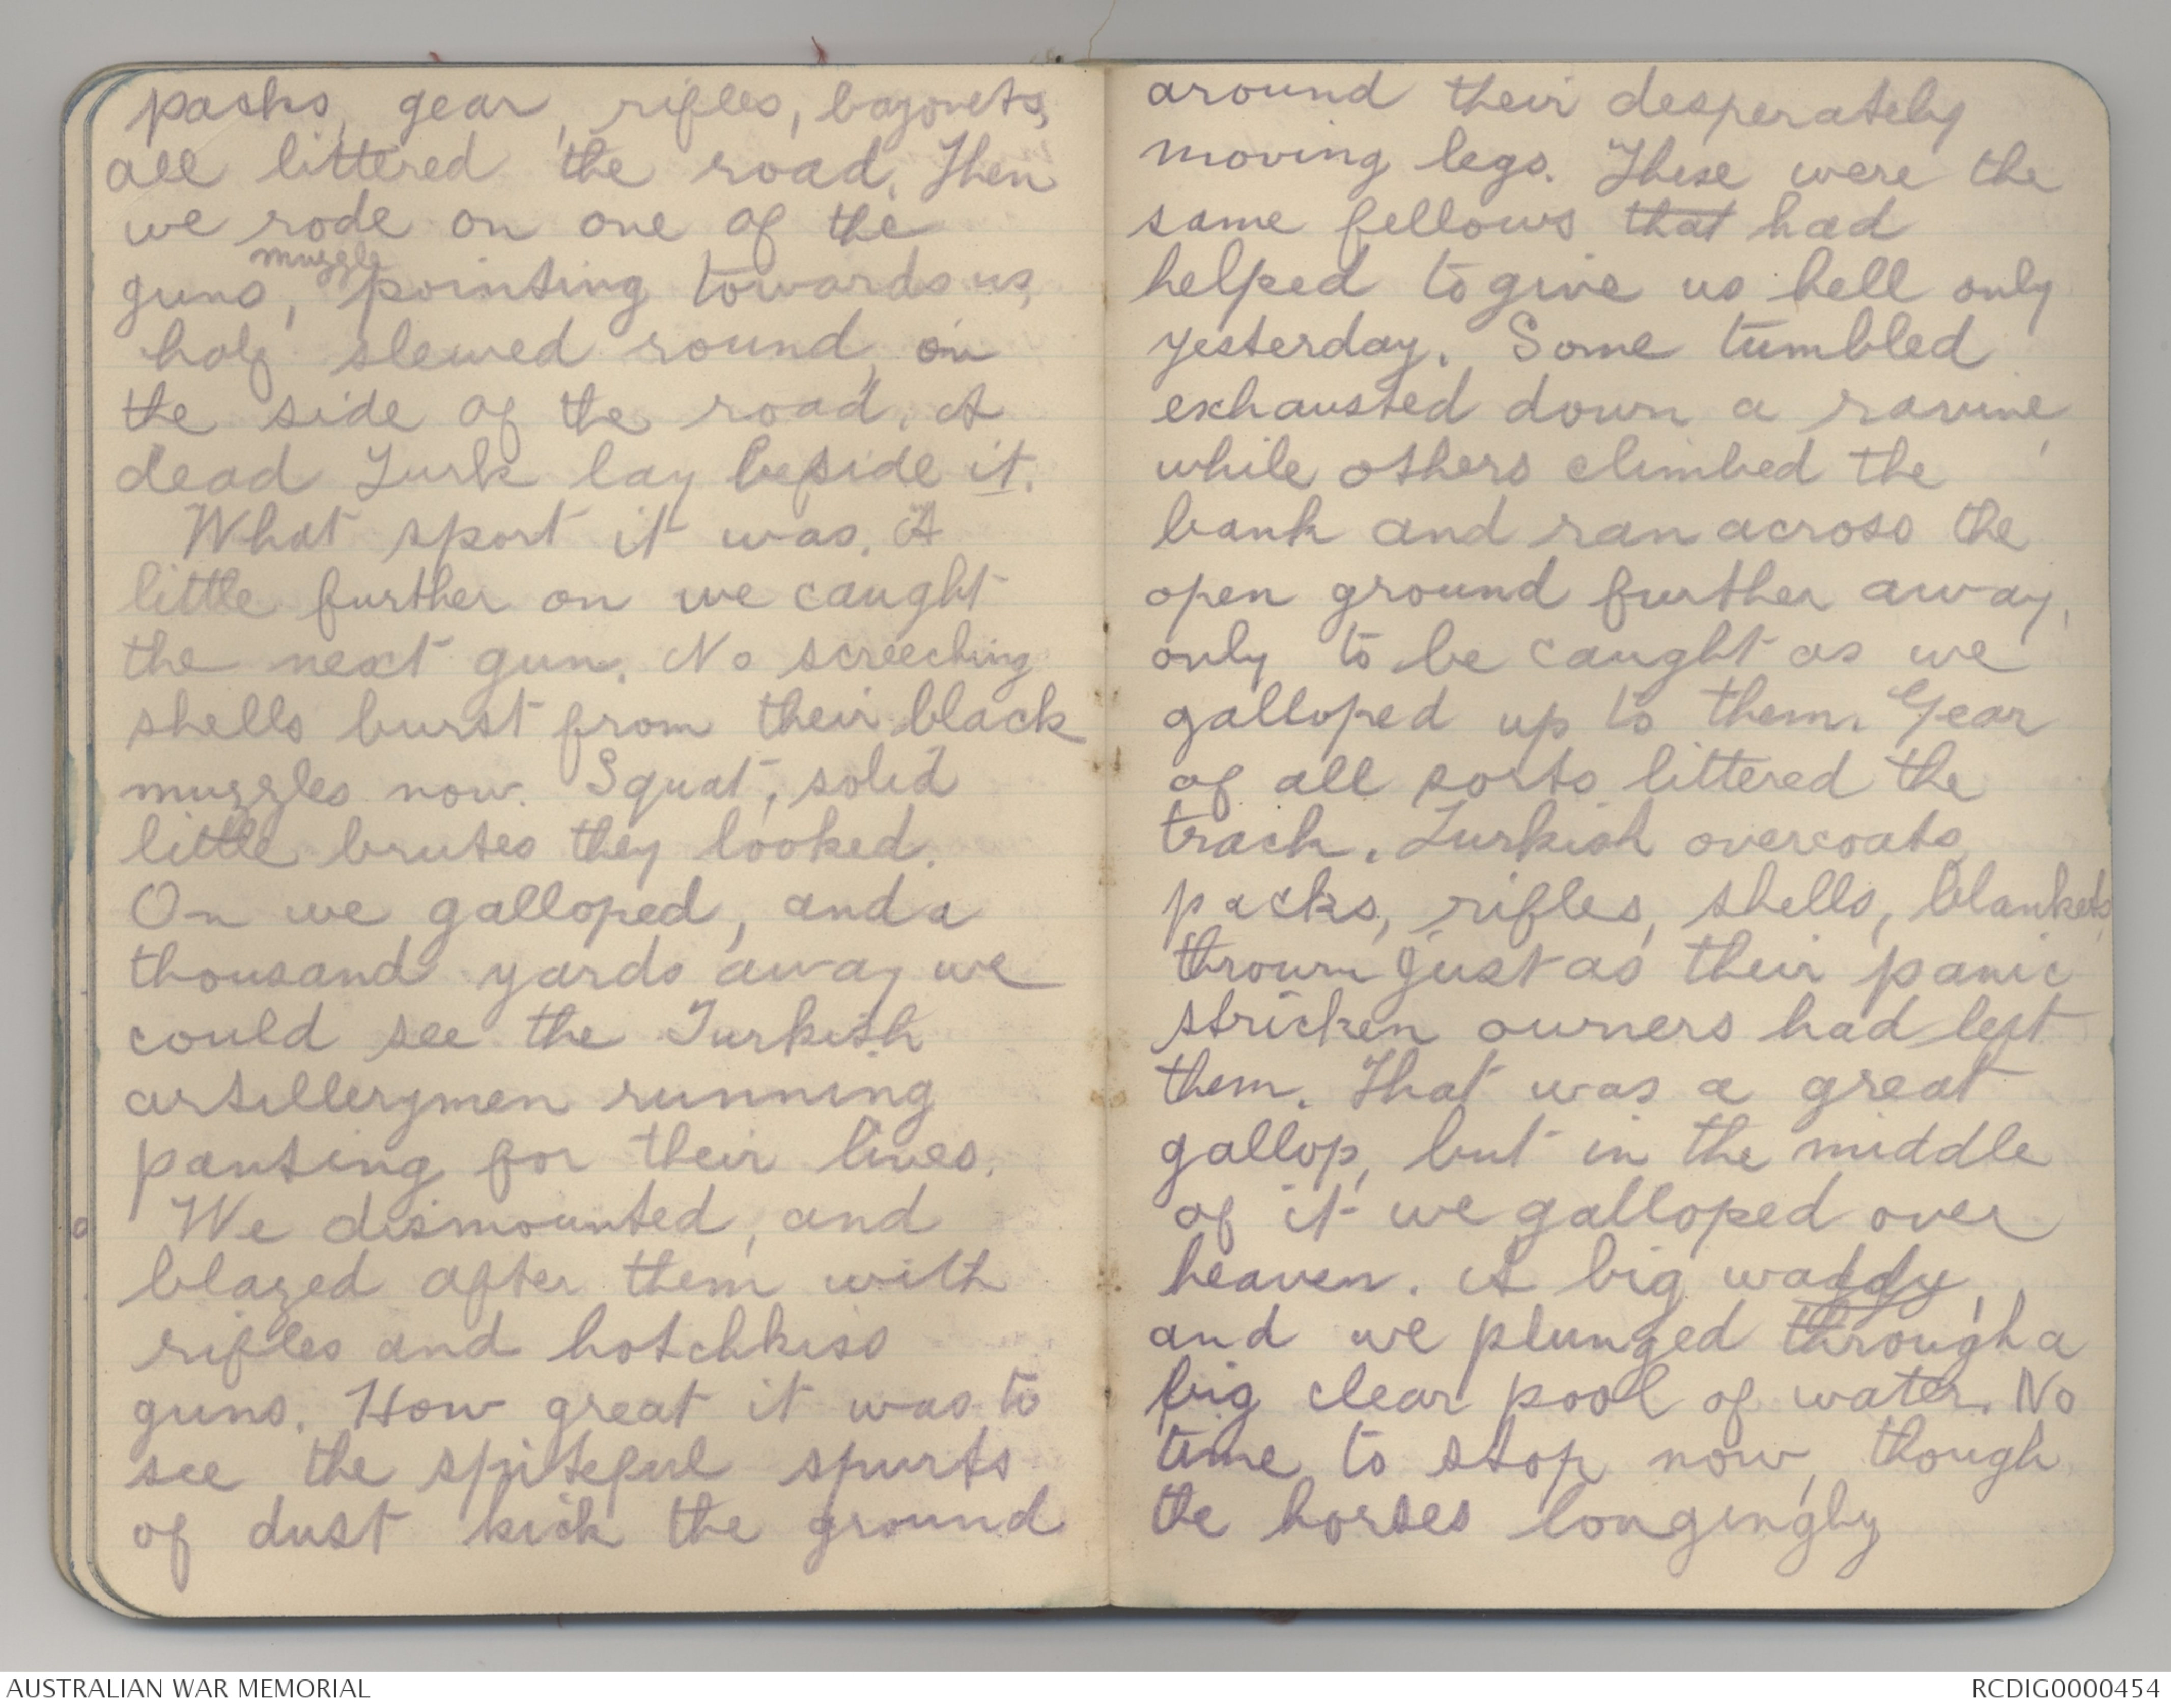 packs, gear, rifles, bayonets,
all littered the road. Then
we rode on one of the
guns, muzzle pointing towards us,
half slewed round, on
the side of the road. A
dead Turk lay beside it.
What sport it was. A
little further on we caught
the next gun. No screeching
shells burst from their black
muzzles now. Squat, solid
little brutes they looked.
On we galloped, and a
thousand yards away we
could see the Turkish
artillerymen running
panting for their lives.
We dismounted, and
blazed after them with
rifles and hotchkiss
guns. How great it was to
see the spiteful spurts
of dust kick the ground
around their desperately
moving legs. These were the
same fellows that had
helped to give us hell only
yesterday. Some tumbled
exhausted down a ravine,
while others climbed the
bank and ran across the
open ground further away,
only to be caught as we
galloped up to them. Gear
of all sorts littered the
track. Turkish overcoats,
packs, rifles, shells, blankets,
thrown just as their panic
stricken owners had left
them. That was a great
gallop, but in the middle
of it we galloped over
heaven. A big waddy,
and we plunged through a
big clear pool of water. No
time to stop now, though
the horses longingly
AUSTRALIAN WAR MEMORIAL
RCDIG0000454